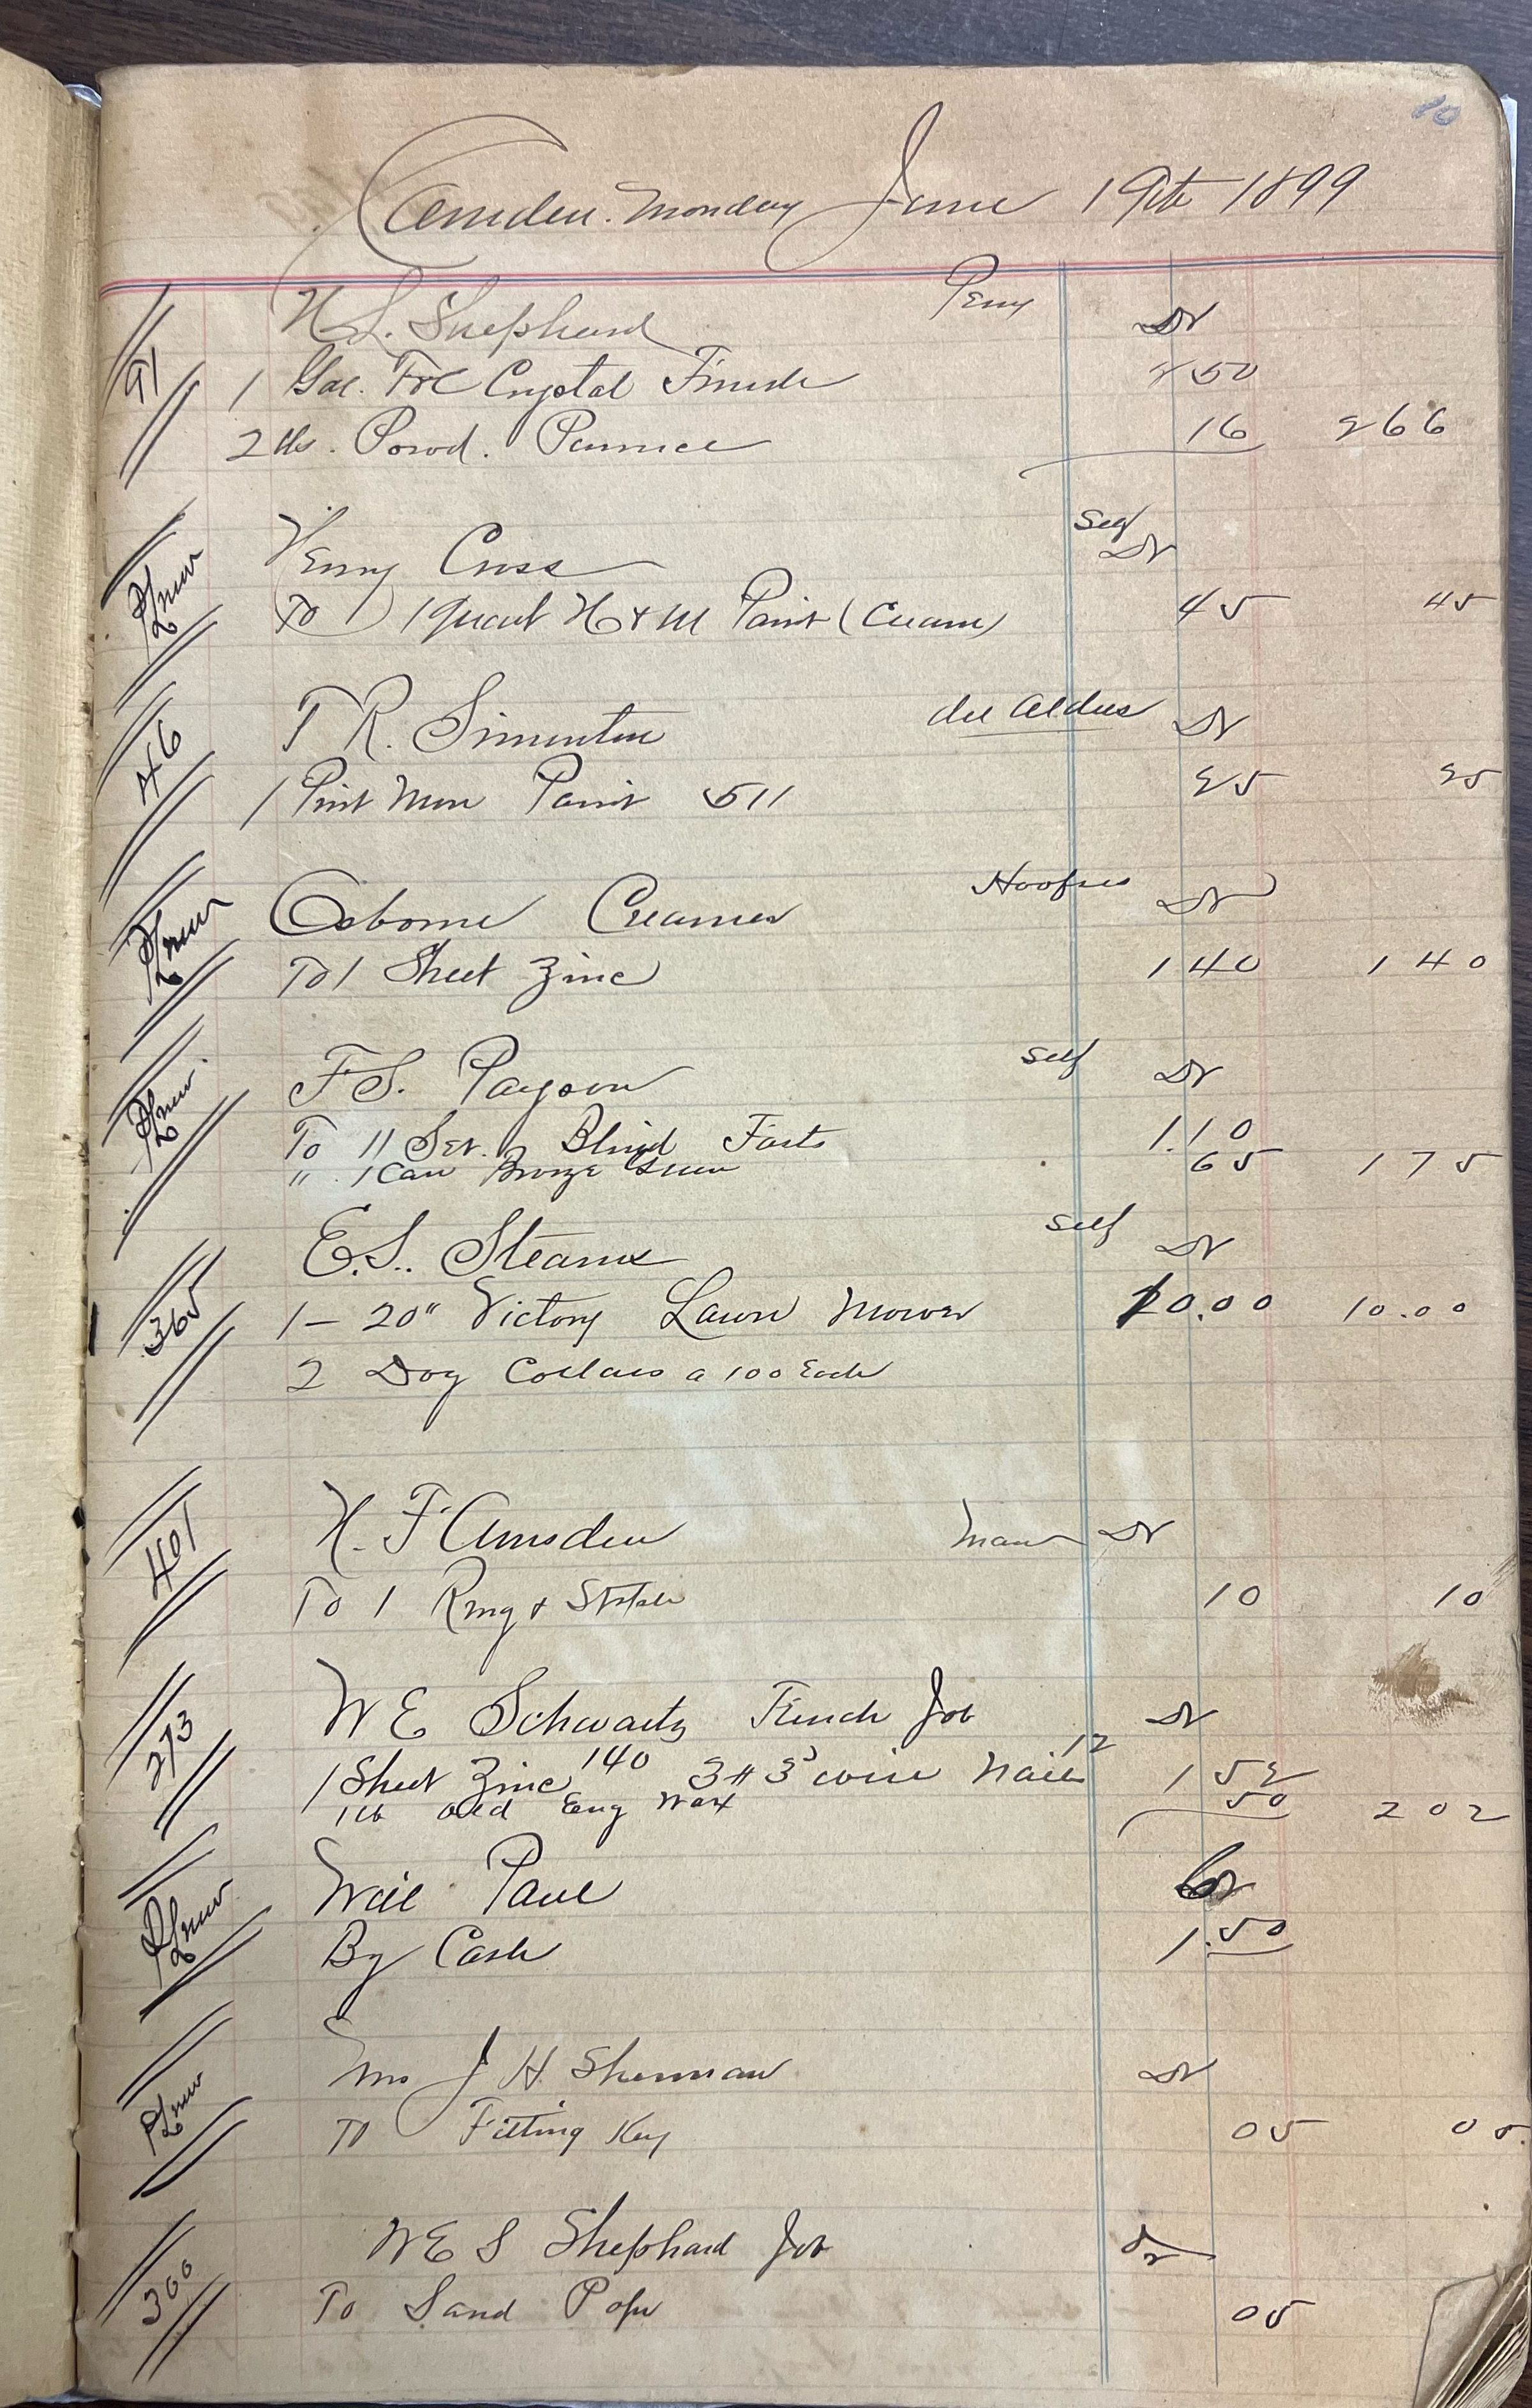 Camden. Monday June 19th 1899
H. L. Shephard Perry Dr
91
1 Gal. Crystal Finish 250
2 lbs. Powd. Pumice 16 266
Henry Cross Self Dr
P/L new
To 1 quart H & M Paint (Cream) 45 45
T R. Simonton Dr
46
1 Pint Mon Paint 511 25 25
Osborne Creamer Dr
P/L new
To 1 Sheet Zinc 140 140
F S. Payson Self Dr
P/L new
To 11 Set Blind Fasts 1.10
" 1 Can Bronze Green 65 175
E. S. Stearns Self Dr
365
1 - 20" Victory Lawn Mower 10.00 10.00
2 Dog Collars a 100 Each
H. F Amsden Man Dr
401
To 1 Ring & Staple 10 10
W E Schwartz French Job Dr
273
1 Sheet Zinc 140 3# 3 wire Nails 12 152
1 lb Old Eng Wax 50 202
Will Paul Cr
P/L new
By Cash 1.50
Mrs J H Sherman Dr
P/L new
To Fitting Key 05 05
W E S Shephard Job Dr
300
To Sand Pap 05